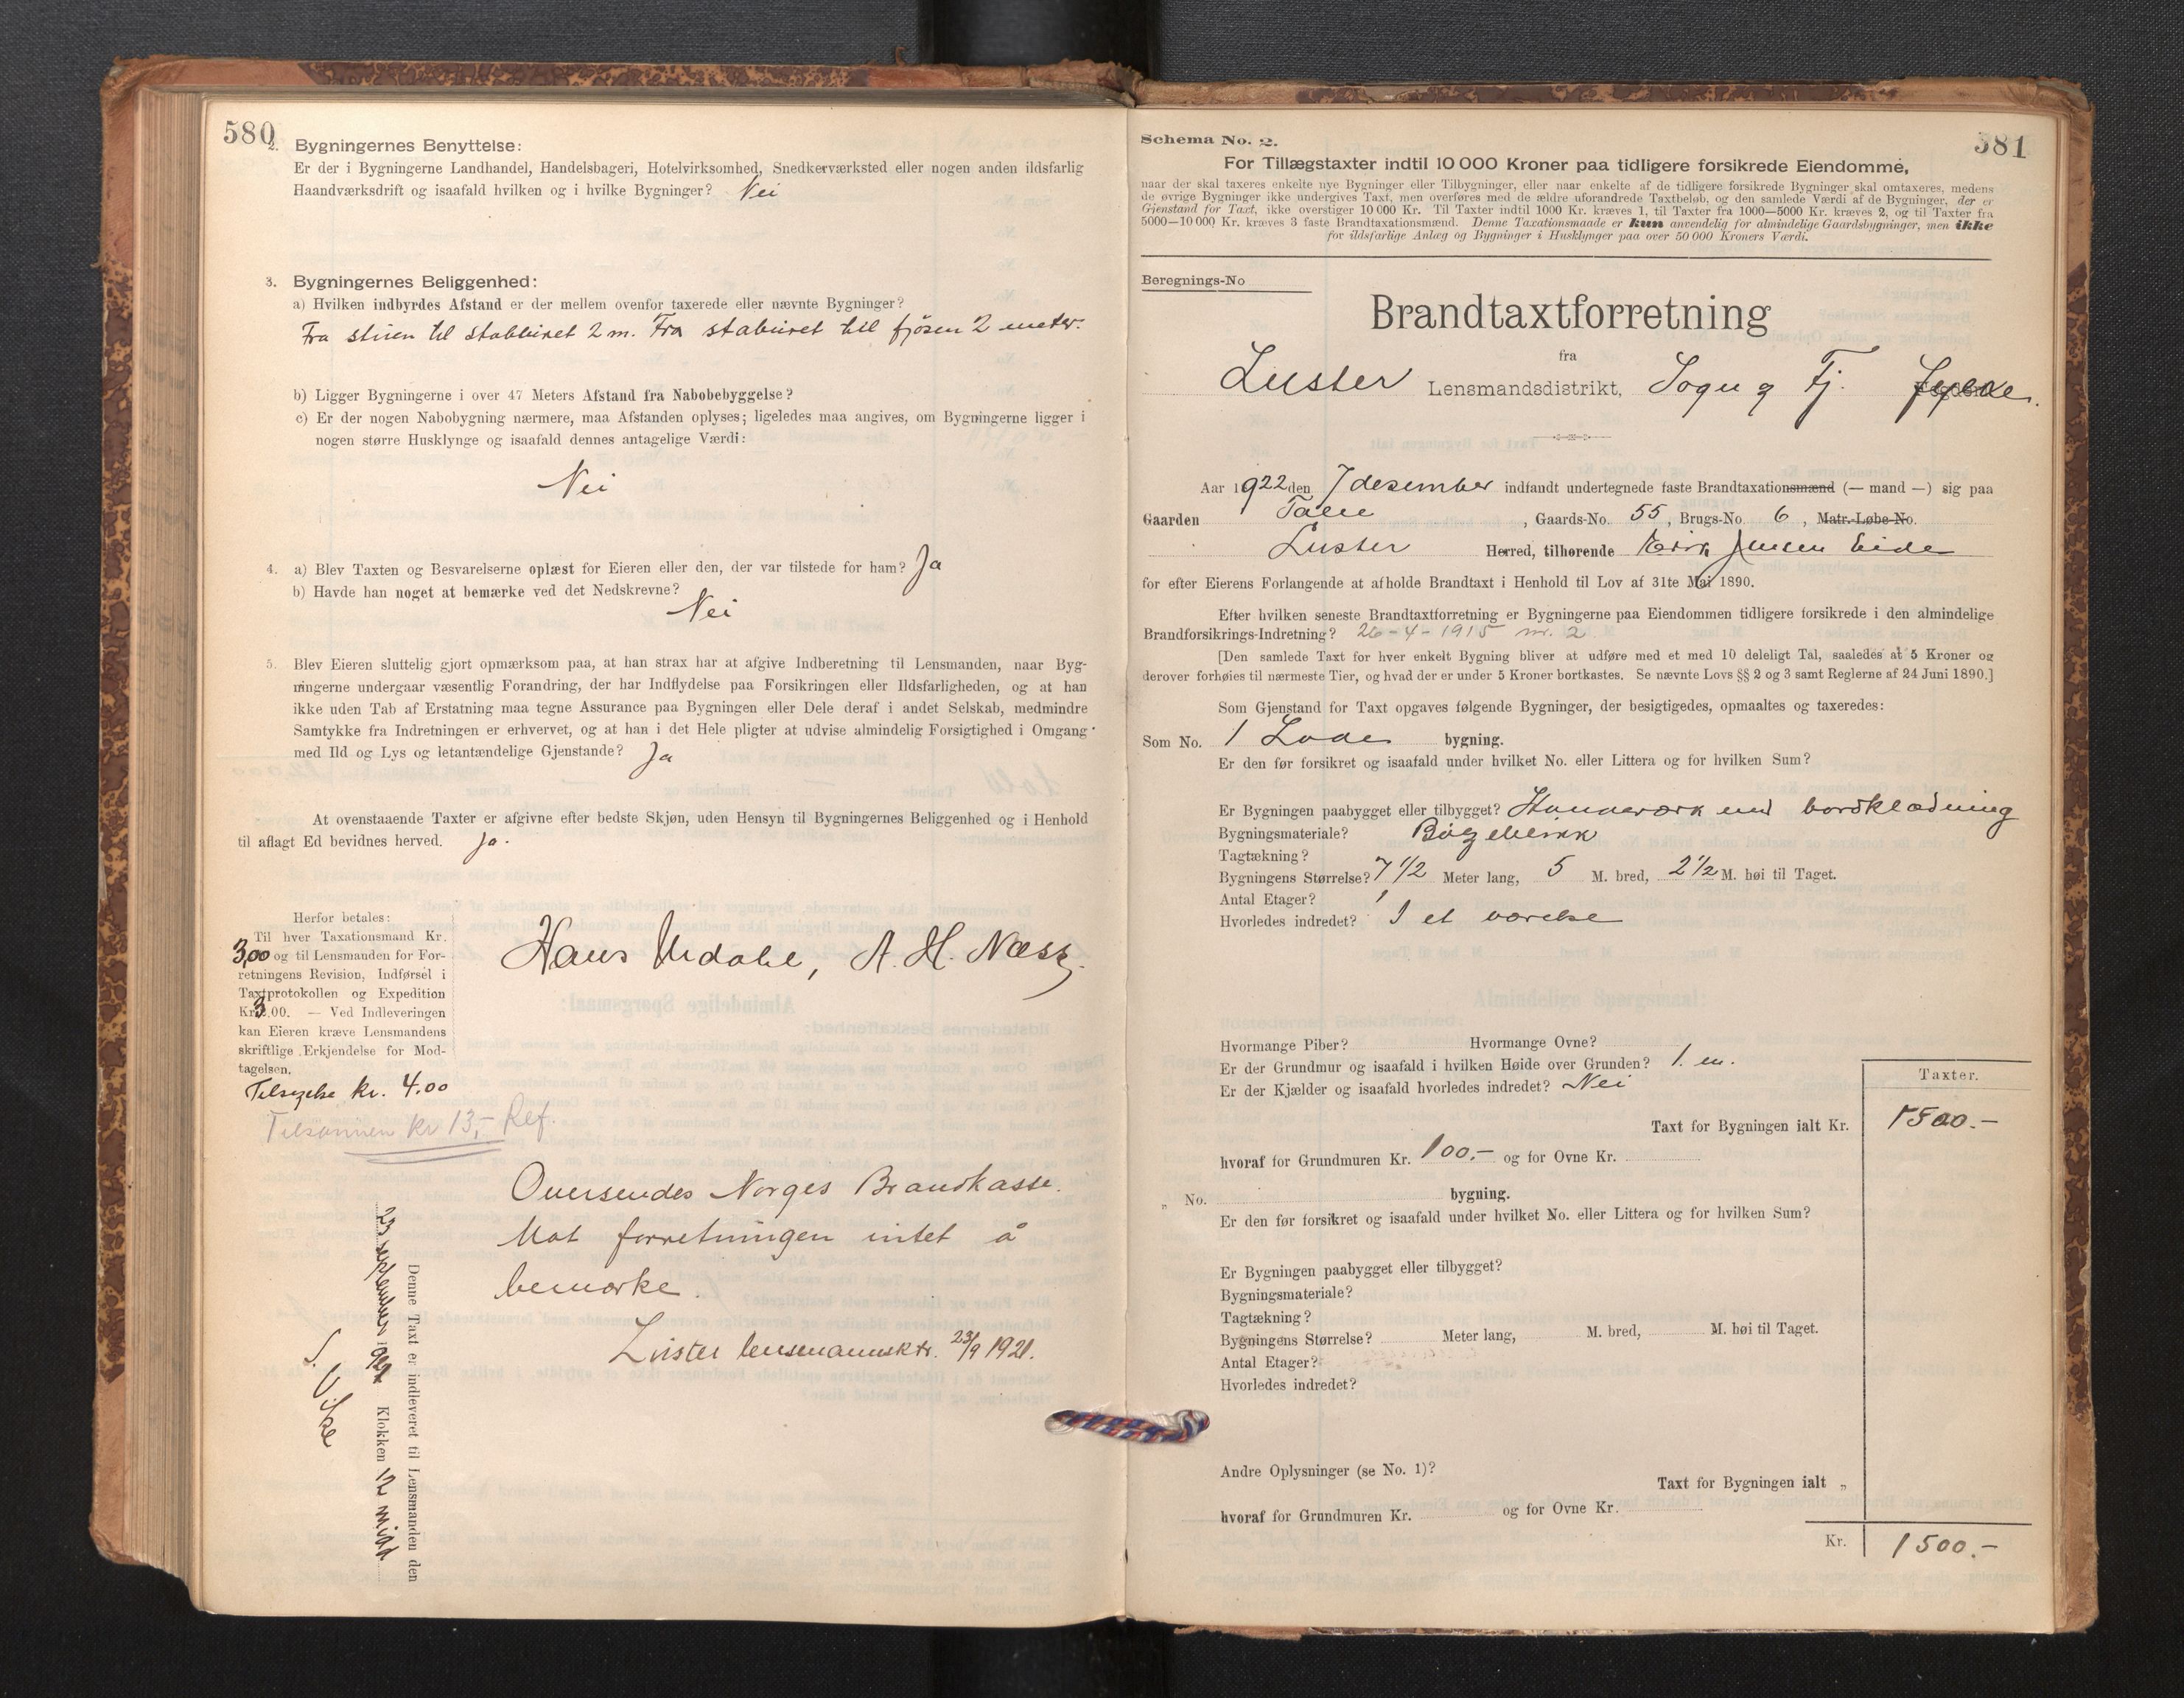 580
2. Bygningernes Benyttelse:
Er der i Bygningerne Landhandel, Handelsbageri, Hotelvirksomhed, Snedkerværksted eller nogen anden ildsfarlig
Haandværksdrift og isaafald hvilken og i hvilke Bygninger? Nei
3. Bygningernes Beliggenhed:
a) Hvilken indbyrdes Afstand er der mellem ovenfor taxerede eller nævnte Bygninger?
Fra stuen til stabburet 2 m. Fra staburet til fjøsen 2 meter.
b) Ligger Bygningerne i over 47 Meters Afstand fra Nabobebyggelse?
c) Er der nogen Nabobygning nærmere, maa Afstanden oplyses; ligeledes maa angives, om Bygningerne ligger i
nogen større Husklynge og isaafald dennes antagelige Værdi:
Nei
4. a) Blev Taxten og Besvarelserne oplæst for Eieren eller den, der var tilstede for ham? Ja
b) Havde han noget at bemærke ved det Nedskrevne?
Nei
5. Blev Eieren sluttelig gjort opmærksom paa, at han strax har at afgive Indberetning til Lensmanden, naar Byg-
ningerne undergaar væsentlig Forandring, der har Indflydelse paa Forsikringen eller Ildsfarligheden, og at han
ikke uden Tab af Erstatning maa tegne Assurance paa Bygningen eller Dele deraf i andet Selskab, medmindre
Samtykke fra Indretningen er erhvervet, og at han i det Hele pligter at udvise almindelig Forsigtighed i Omgang
med Ild og Lys og letantændelige Gjenstande? Ja
At ovenstaaende Taxter er afgivne efter bedste Skjøn, uden Hensyn til Bygningernes Beliggenhed og i Henhold
til aflagt Ed bevidnes herved. Ja.
Herfor betales:
Til hver Taxationsmand Kr.
3,00 og til Lensmanden for For-
retningens Revision, Indførsel i
Taxtprotokollen og Expedition
Kr. 3.00. — Ved Indleveringen
kan Eieren kræve Lensmandens
skriftlige Erkjendelse for Mod-
tagelsen.
Hans Urdahl, A. H. Næss.
kr. 4.00
Tilsammen kr 13,- Ref.
Oversendes Norges Brandkasse.
Mot forretningen intet å
bemærke.
Luster lensmannsktr. 23/9 1921.
Denne Taxt er indleveret til Lensmanden den
23 september 1921 Klokken 12 midd
S. Vike
581
Schema No. 2.
For Tillægstaxter indtil 10 000 Kroner paa tidligere forsikrede Eiendomme,
naar der skal taxeres enkelte nye Bygninger eller Tilbygninger, eller naar enkelte af de tidligere forsikrede Bygninger skal omtaxeres, medens
de øvrige Bygninger ikke undergives Taxt, men overføres med de ældre uforandrede Taxtbeløb, og den samlede Værdi af de Bygninger, der er
Gjenstand for Taxt, ikke overstiger 10 000 Kr. Til Taxter indtil 1000 Kr. kræves 1, til Taxter fra 1000—5000 Kr. kræves 2, og til Taxter fra
5000—10 000 Kr. kræves 3 faste Brandtaxationsmænd. Denne Taxationsmaade er kun anvendelig for almindelige Gaardsbygninger, men ikke
for ildsfarlige Anlæg og Bygninger i Husklynger paa over 50 000 Kroners Værdi.
Beregnings-No
Brandtaxtforretning
fra
Luster Lensmandsdistrikt, Sogn og Fj. fylke.
Aar 1922 den 7 desember indfandt undertegnede faste Brandtaxationsmænd (— mand —) sig paa
Gaarden , Gaards-No. 55, Brugs-No 6, Matr.-Løbe-No.
Luster Herred, tilhørende Erik Jensen Eide
for efter Eierens Forlangende at afholde Brandtaxt i Henhold til Lov af 31te Mai 1890.
Efter hvilken seneste Brandtaxtforretning er Bygningerne paa Eiendommen tidligere forsikrede i den almindelige
Brandforsikrings-Indretning? 26-4-1915 nr. 2
[Den samlede Taxt for hver enkelt Bygning bliver at udføre med et med 10 deleligt Tal, saaledes at 5 Kroner og
derover forhøies til nærmeste Tier, og hvad der er under 5 Kroner bortkastes. Se nævnte Lovs §§ 2 og 3 samt Reglerne af 24 Juni 1890.]
Som Gjenstand for Taxt opgaves følgende Bygninger, der besigtigedes, opmaaltes og taxeredes:
Som No. 1 Lade bygning.
Er den før forsikret og isaafald under hvilket No. eller Littera og for hvilken Sum?
Er Bygningen paabygget eller tilbygget? med bordklædning
Bygningsmateriale?
Tagtækning?
Bygningens Størrelse? 7 1/2 Meter lang, 5 M. bred, 2 1/2 M. høi til Taget.
Antal Etager? 1
Hvorledes indredet? I et værelse
Hvormange Piber? Hvormange Ovne?
Er der Grundmur og isaafald i hvilken Høide over Grunden? 1. m.
Er der Kjælder og isaafald hvorledes indredet? Nei
Taxter.
Taxt for Bygningen ialt Kr. 1500.-
hvoraf for Grundmuren Kr. 100.- og for Ovne Kr.
„ No. bygning.
Er den før forsikret og isaafald under hvilket No. eller Littera og for hvilken Sum?
Er Bygningen paabygget eller tilbygget?
Bygningsmateriale?
Tagtækning?
Bygningens Størrelse? Meter lang, M. bred, M. høi til Taget.
Antal Etager?
Hvorledes indredet?
Andre Oplysninger (se No. 1)?
Taxt for Bygningen ialt „
hvoraf for Grundmuren Kr. og for Ovne Kr.
Kr. 1500.-